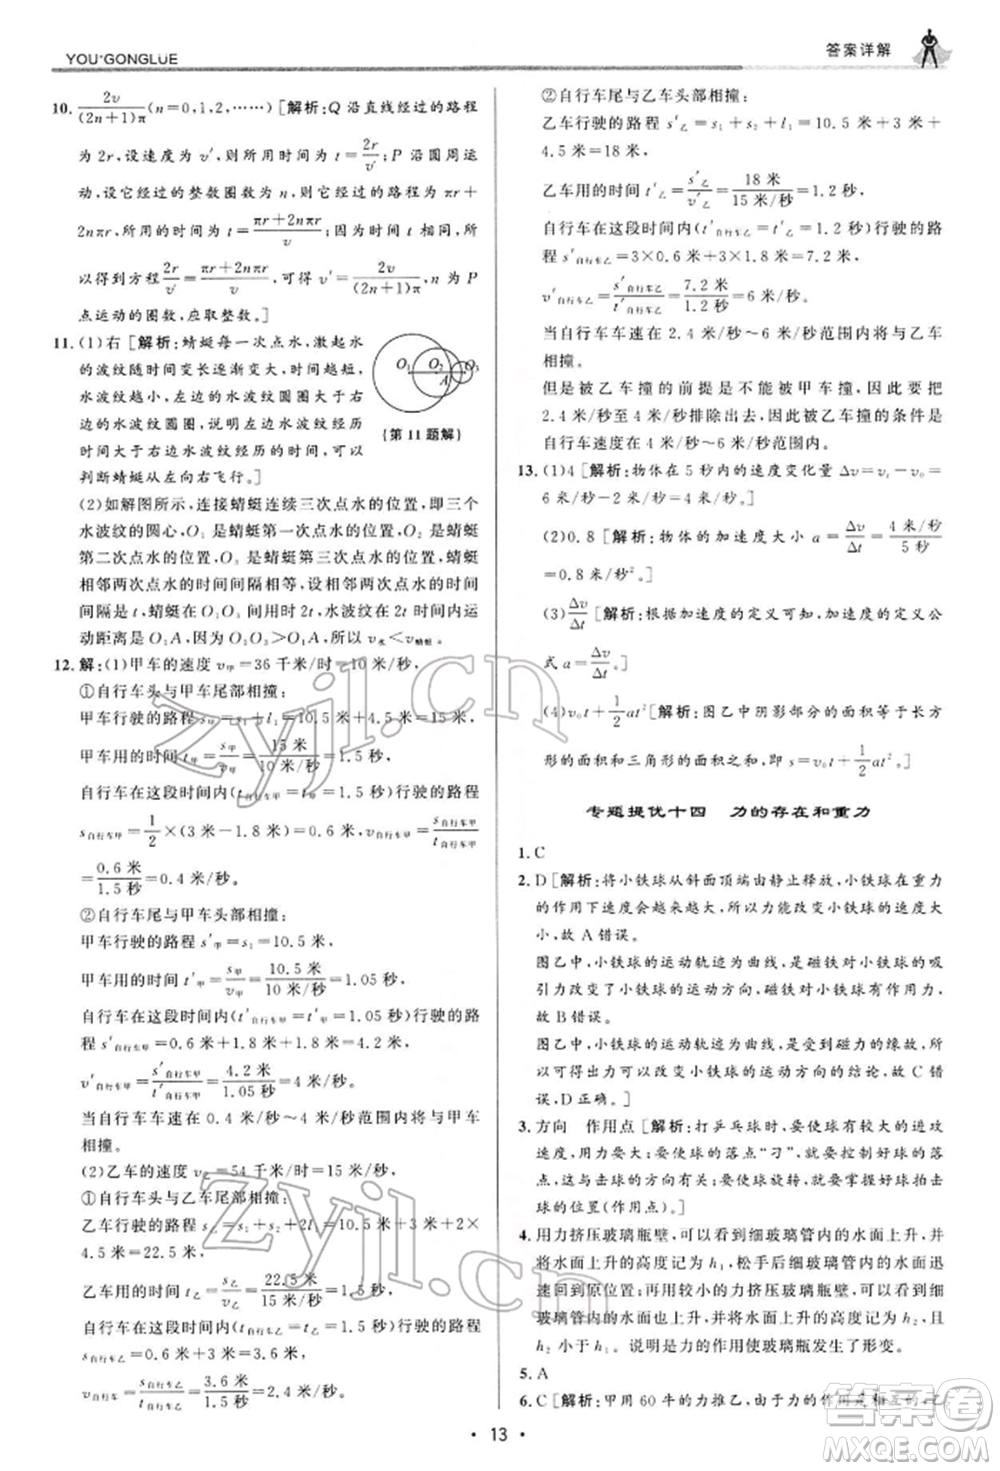 YOU+GONGLUE
答案详解
10. 2v/(2n+1)π (n=0,1,2,……) [解析:Q 沿直线经过的路程
为 2r,设速度为 v′,则所用的时间为 t=2r/v′;P 沿圆周运
动,设它经过的整数圈数为 n,则它经过的路程为 πr+
2nπr,所用的时间为 t=(πr+2nπr)/v,由于时间相同,所
以得到方程 2r/v′=(πr+2nπr)/v,可得 v′=2v/(2n+1)π,n 为 P
点运动的圈数,应取整数。]
11. (1)右 [解析:蜻蜓每一次点水,激起水
的波纹随时间逐渐变大,时间越短,
水波纹越小,左边的水波纹圆圈大于
右边水波纹圆圈,说明左边水波纹历
时大于右边水波纹经历的时间,由此
判断蜻蜓从左向右飞行。]
O₁ O₂ O₃ A
(第 11 题解)
(2)如解图所示,连接蜻蜓连续三次点水的位置,即三个
水波纹的圆心,O₁ 是蜻蜓第一次点水的位置,O₂ 是蜻蜓
第二次点水的位置,O₃ 是蜻蜓第三次点水的位置,蜻蜓
相邻两次点水的时间间隔相等,设相邻两次点水的时间
为 t,则蜻蜓在 O₁O₃ 间用时 2t,水波纹在 2t 时间内运
动距离是 O₁A,因为 O₁O₃>O₁A,所以 v水<v蜻蜓。
12. 解:(1)甲车的速度 v甲=36 千米/时=10 米/秒,
①自行车头与甲车尾部相撞:
甲车行驶的路程 s甲=s₁+l₁=10.5 米+4.5 米=15 米,
甲车用的时间 t甲=s甲/v甲=15 米/10 米/秒=1.5 秒,
自行车在这段时间内(t自行车甲=t甲=1.5 秒)行驶的路程
s自行车甲=1/2×(3 米-1.8 米)=0.6 米,v自行车甲=s自行车甲/t自行车甲
=0.6 米/1.5 秒=0.4 米/秒,
②自行车尾与甲车头部相撞:
甲车行驶的路程 s′甲=s₁=10.5 米,
甲车用的时间 t′甲=s′甲/v甲=10.5 米/10 米/秒=1.05 秒,
自行车在这段时间内(t′自行车甲=t′甲=1.05 秒)行驶的路程
s′自行车甲=0.6 米+1.8 米+1.8 米=4.2 米,
v′自行车甲=s′自行车甲/t′自行车甲=4.2 米/1.05 秒=4 米/秒,
当自行车车速在 0.4 米/秒~4 米/秒范围内将与甲车
相撞。
(2)乙车的速度 v乙=54 千米/时=15 米/秒,
①自行车头与乙车尾部相撞:
乙车行驶的路程 s乙=s₁+s₂+2l₁=10.5 米+3 米+2×
4.5 米=22.5 米,
乙车用的时间 t乙=s乙/v乙=22.5 米/15 米/秒=1.5 秒,
自行车在这段时间内(t自行车乙=t乙=1.5 秒)行驶的路程
s自行车乙=0.6 米+3 米=3.6 米,
v自行车乙=s自行车乙/t自行车乙=3.6 米/1.5 秒=2.4 米/秒,
②自行车尾与乙车头部相撞:
乙车行驶的路程 s′乙=s₁+s₂+l₁=10.5 米+3 米+
4.5 米=18 米,
乙车用的时间 t′乙=s′乙/v′乙=18 米/15 米/秒=1.2 秒,
自行车在这段时间内(t′自行车乙=t′乙=1.2 秒)行驶的路
程 s′自行车乙=3×0.6 米+3×1.8 米=7.2 米,
v′自行车乙=s′自行车乙/t′自行车乙=7.2 米/1.2 秒=6 米/秒,
当自行车车速在 2.4 米/秒~6 米/秒范围内将与乙车
相撞。
但是被乙车撞的前提是不能被甲车撞,因此要把
2.4 米/秒至 4 米/秒排除出去,因此被乙车撞的条件是
自行车速度在 4 米/秒~6 米/秒范围内。
13. (1)4 [解析:物体在 5 秒内的速度变化量 Δv=vₜ-v₀=
6 米/秒-2 米/秒=4 米/秒。]
(2)0.8 [解析:物体的加速度大小 a=Δv/Δt=4 米/秒/5 秒
=0.8 米/秒²。]
(3)Δv/Δt [解析:根据加速度的定义可知,加速度的定义公
式 a=Δv/Δt。]
(4)v₀t+1/2at² [解析:图乙中阴影部分的面积等于长方
形的面积和三角形的面积之和,即 s=v₀t+1/2at²。]
专题提优十四 力的存在和重力
1. C
2. D [解析:将小铁球从斜面顶端由静止释放,小铁球在重力
的作用下速度会越来越大,所以重力能改变小铁球的速度大
小,故 A 错误。
图乙中,小铁球的运动轨迹为曲线,是磁铁对小铁球的吸
引力改变了小铁球的运动方向,磁铁对小铁球有力的作用,
故 B 错误。
图乙中,小铁球的运动轨迹为曲线,是受到磁力的缘故,故
可以得出磁力可以改变小铁球的运动方向的结论,故 C 错
误、D 正确。]
3. 方向 作用点 [解析:打乒乓球时,要使球有左右的进攻
线路,要使球的落点“刁”,则要改变用力的方向打击球的不
同位置,从而改变球的运动方向;要使球旋转,就要用球拍击
球的不同位置(作用点)。]
4. 用力挤压玻璃瓶壁,可以看到细玻璃管内的水面上升,并
将水面上升的高度记为 h₁,松手后细玻璃管内的水面又
返回到原位置;再用较小的力挤压玻璃瓶壁,可以看到细
玻璃管内的水面也上升,并将水面上升的高度记为 h₂,且
h₂ 小于 h₁。说明力的作用使玻璃瓶发生了形变。
5. A
6. C [解析:甲用 60 牛的力推乙,由于力的作用是相互的,乙
• 13 •
zyjl.cn
zyjl.cn
答案圈
MXQE.COM